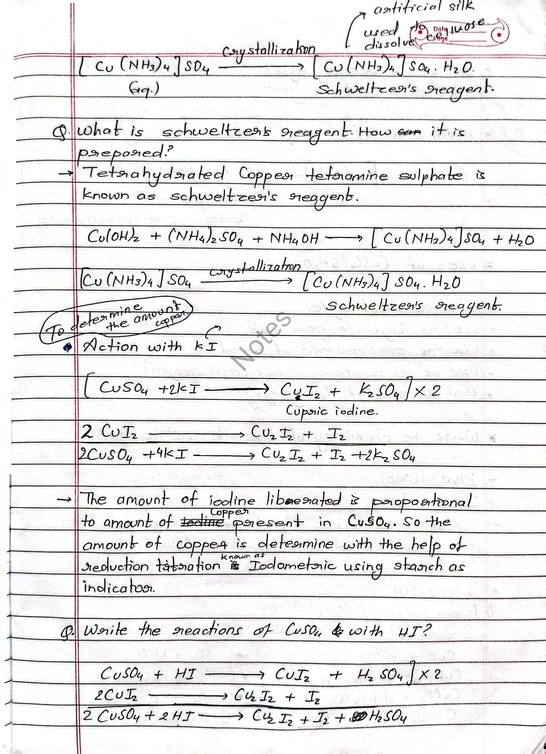 artificial silk
used to
dissolve cellulose
Date
Page
[Cu(NH3)4]SO4 crystallization ⟶ [Cu(NH3)4]SO4.H2O.
(aq.) Schweltzer's reagent.
Q. What is schweltzer's reagent. How it is
prepared?
→ Tetrahydrated Copper tetramine sulphate is
known as schweltzer's reagent.
Cu(OH)2 + (NH4)2SO4 + NH4OH ⟶ [Cu(NH3)4]SO4 + H2O
[Cu(NH3)4]SO4 crystallization ⟶ [Cu(NH3)4]SO4.H2O
Schweltzer's reagent.
To determine
the amount
copper
• Action with KI
Notes
[CuSO4 + 2KI ⟶ CuI2 + K2SO4] × 2
Cupric iodine.
2 CuI2 ⟶ Cu2I2 + I2
2CuSO4 + 4KI ⟶ Cu2I2 + I2 + 2K2SO4
→ The amount of iodine liberated is propotional
to amount of copper present in CuSO4. So the
amount of copper is determine with the help of
reduction titration known as Iodometric using starch as
indicator.
Q. Write the reactions of CuSO4 with HI?
CuSO4 + HI ⟶ CuI2 + H2SO4] × 2
2CuI2 ⟶ Cu2I2 + I2
2 CuSO4 + 2HI ⟶ Cu2I2 + I2 + H2SO4